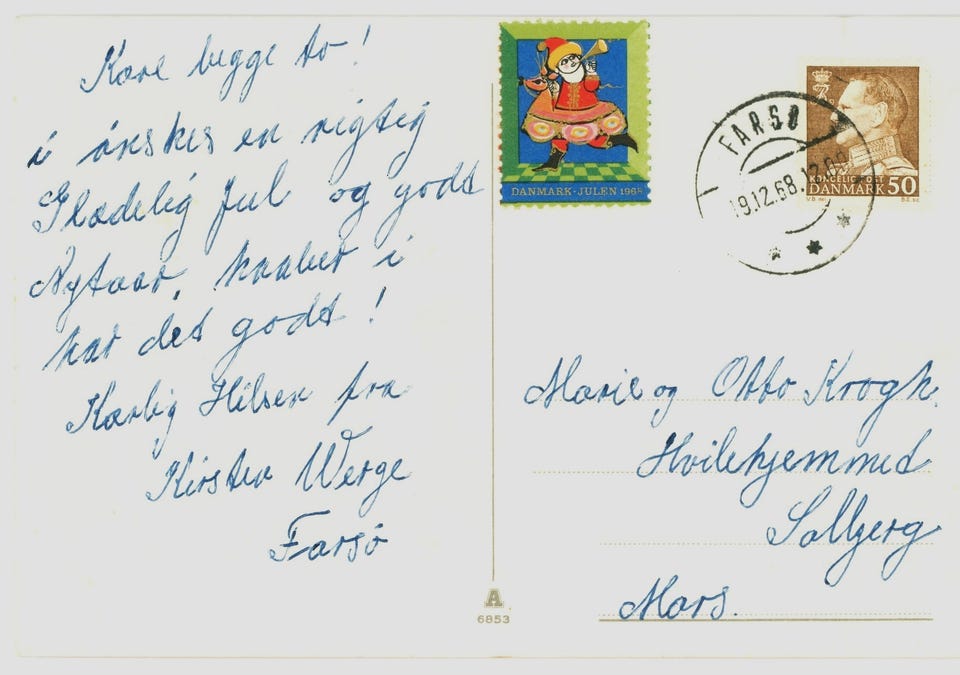 Kære begge to!
i ønskes en rigtig
Glædelig Jul og godt
Nytaar, haaber i
har det godt!
Kærlig Hilsen fra
Kirsten Werge
Farsø
DANMARK·JULEN 1968
FARSØ
19.12.68.12.00
KONGELIG POST
DANMARK 50
V.B. del.
B.E. sc.
Marie og Otto Krogh.
Hvilehjemmed
Solbjerg
Mors.
A
6853